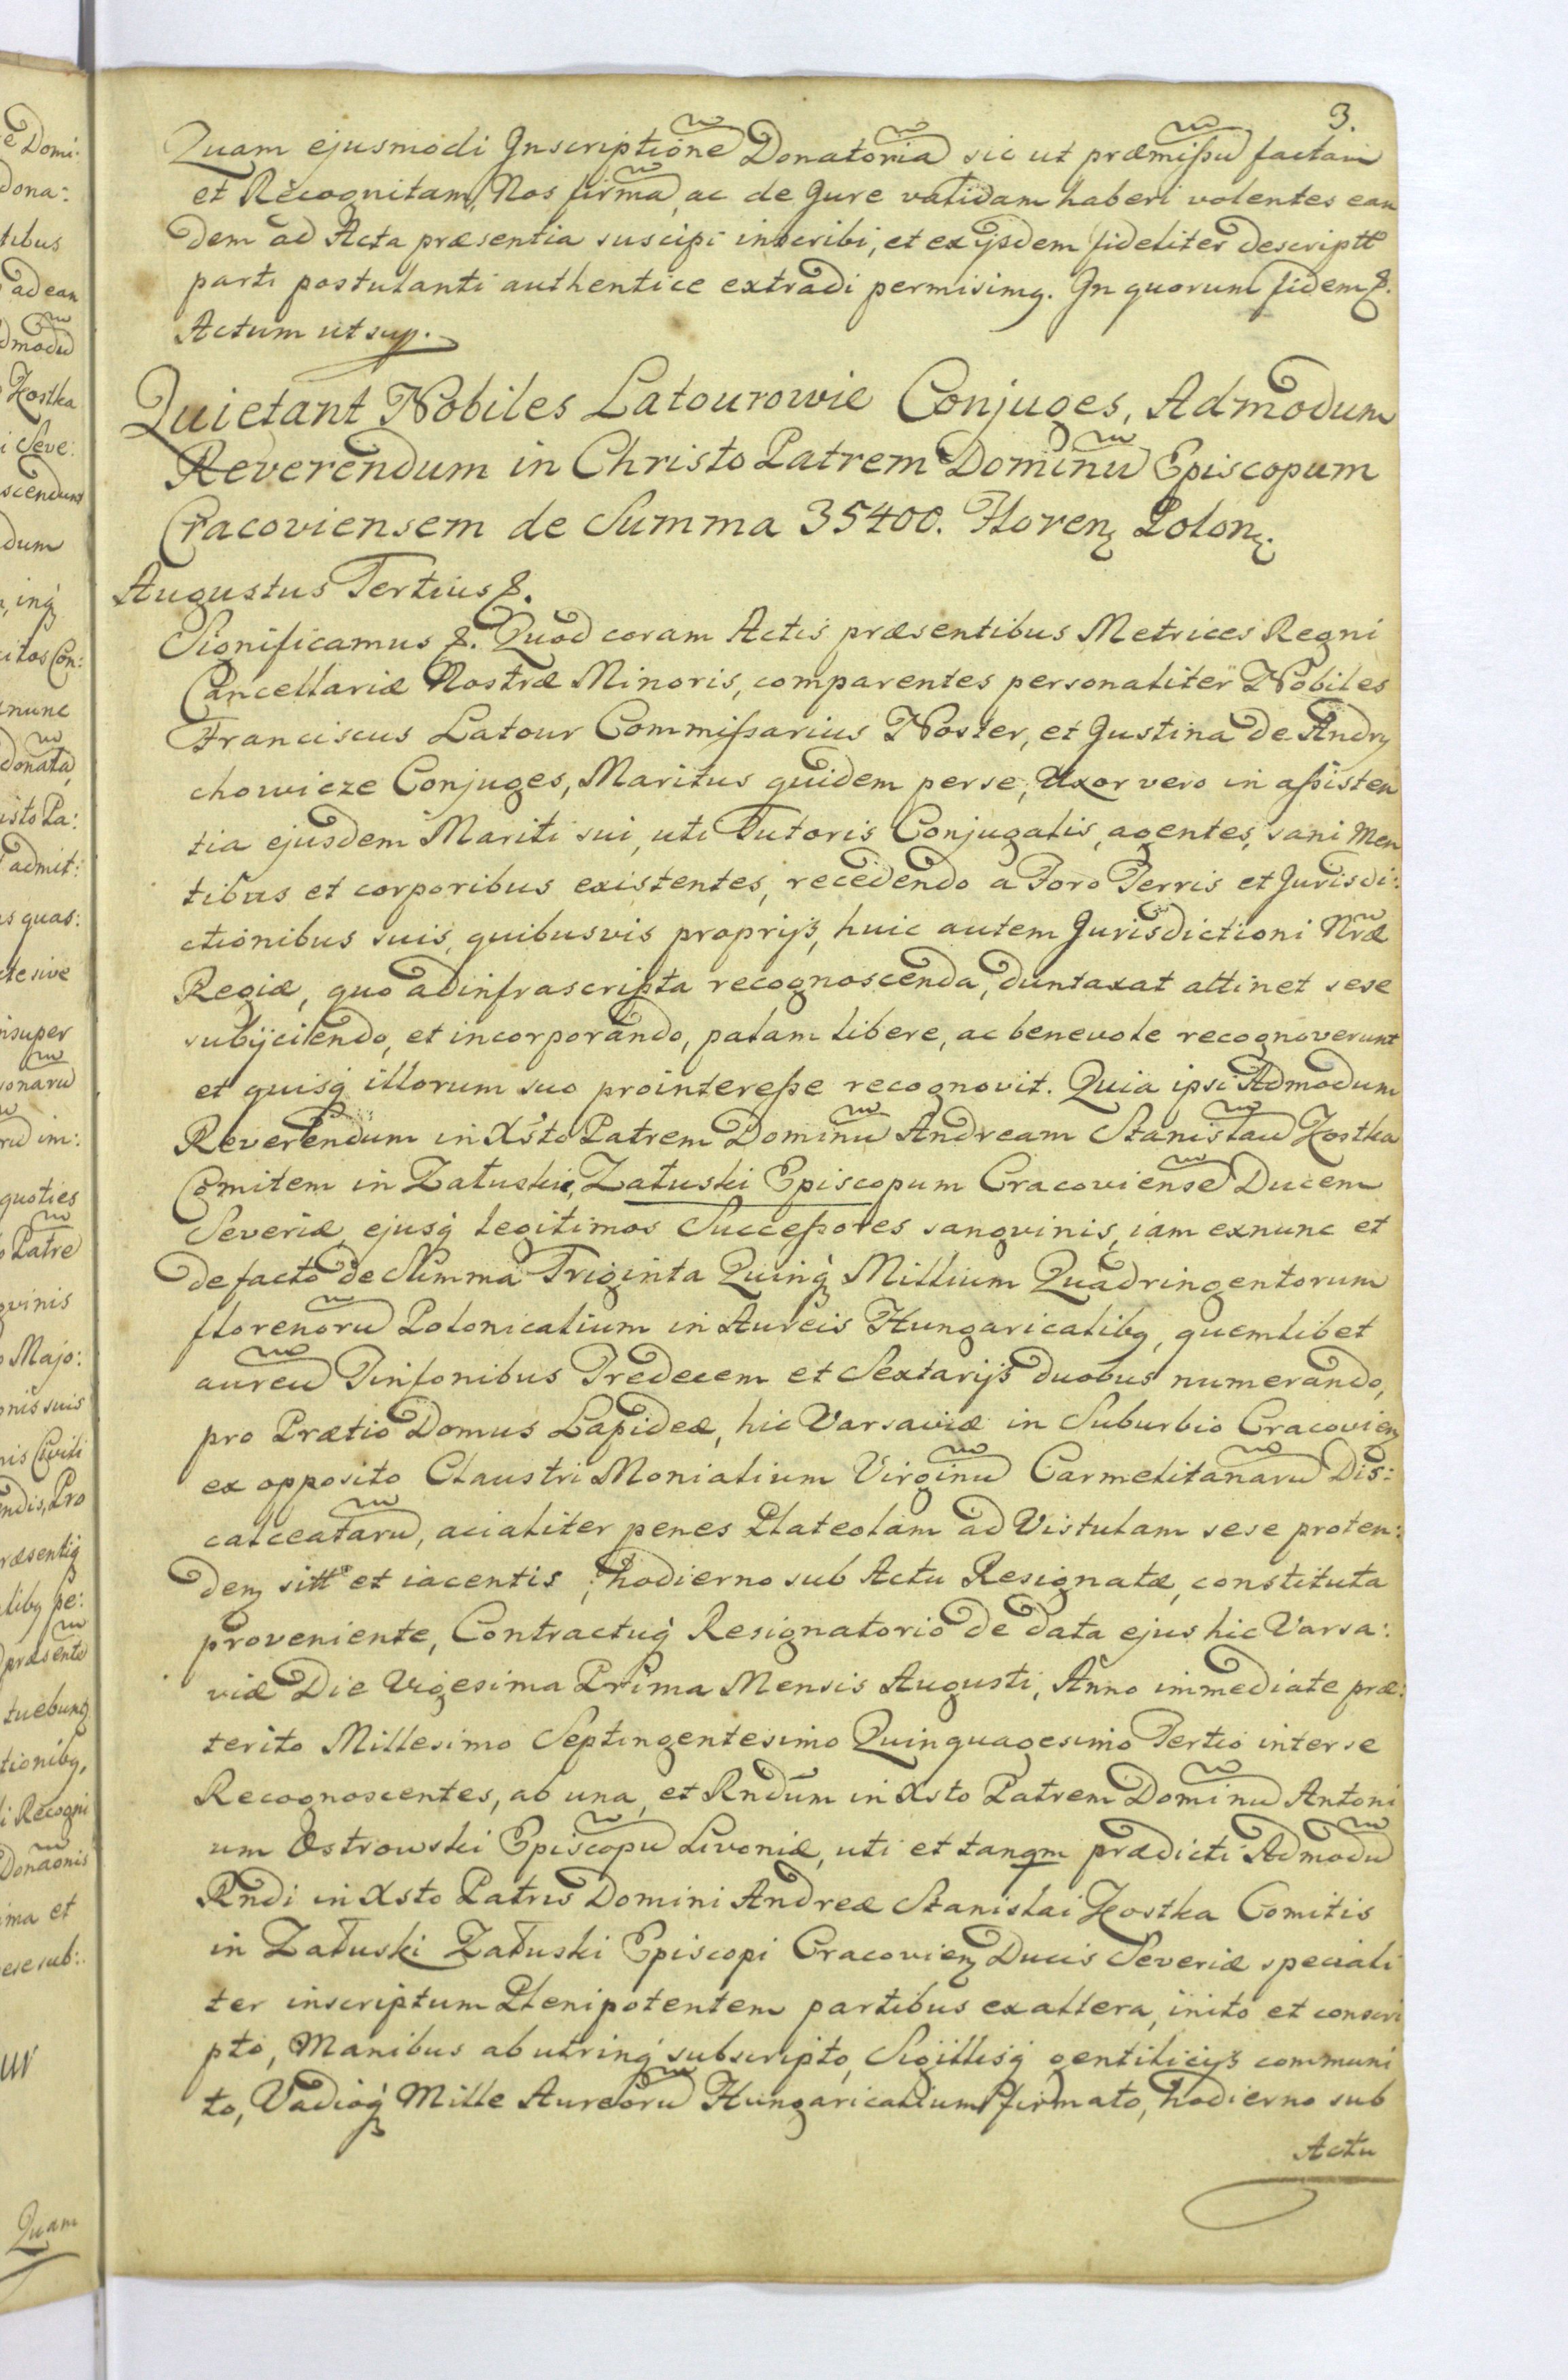 3.
Quam ejusmodi Inscriptione Donatoria sic ut præmißu factam
et Recognitam, Nos firma, ac de Jure validam haberi volentes ean
dem ad Acta præsentia suscipi inscribi, et ex ijsdem fideliter descriptt
parti postulanti authentice extradi permisimq. In quorum fidem &.
Actum ut sup.
Quietant Nobiles Latourowie Conjuges, Admodum
Reverendum in Christo Patrem Dominu Episcopum
Cracoviensem de Summa 35400. Floren Polon.
Augustus Tertius &.
Significamus &. Quod coram Actis præsentibus Metrices Regni
Cancellariæ Nostræ Minoris, comparentes personaliter Nobiles
Franciscus Latour Commißarius Noster, et Justina de Andry
chowicze Conjuges, Maritus quidem per se, Uxor vero in aßisten
tia ejusdem Mariti sui, uti Tutoris Conjugalis, agentes, sani Men
tibus et corporibus existentes, recedendo a Foro Terris et Jurisdi:
ctionibus suis, quibusvis proprijs, huic autem Jurisdictioni Nræ
Regiæ, quo ad infrascripta recognoscenda, duntaxat attinet sese
subijciendo, et incorporando, palam libere, ac benevole recognoverunt
et quisq illorum suo pro intereße recognovit. Quia ipsi Admodum
Reverendum in Xsto Patrem Dominu Andream Stanislau Kostka
Comitem in Załuskie, Załuski Episcopum Cracoviense Ducem
Severiæ, ejusq legitimos Succeßores sangvinis, iam exnunc et
de facto de Summa Triginta Quinq Millium Quadringentorum
florenoru Polonicalium in Aureis Hungaricalibq, quemlibet
aureu Tinfonibus Tredecem et Sextarijs duobus numerando,
pro Prætio Domus Lapideæ, hic Varsaviæ in Suburbio Cracovien
ex opposito Claustri Monialium Virginu Carmelitanaru Dis:
calceataru, acialiter penes Plateolam ad Vistulam sese proten:
den sitt et iacentis, hodierno sub Actu Resignatæ, constituta
proveniente, Contractuq Resignatorio de data ejus hic Varsa:
viæ Die Vigesima Prima Mensis Augusti, Anno immediate præ:
terito Millesimo Septingentesimo Quinquagesimo Tertio inter se
Recognoscentes, ab una, et Rndum in Xsto Patrem Dominu Antoni
um Ostrowski Episcopu Livoniæ, uti et tanqm prædicti Admodu
Rndi in Xsto Patris Domini Andreæ Stanislai Kostka Comitis
in Załuski Załuski Episcopi Cracovien Ducis Severiæ speciali
ter inscriptum Plenipotentem partibus ex altera, inito et conscri
pto, Manibus ab utrinq subscripto, Sigillisq gentilicijs communi
to, Vadioq Mille Aureoru Hungaricalium firmato, hodierno sub
Actu